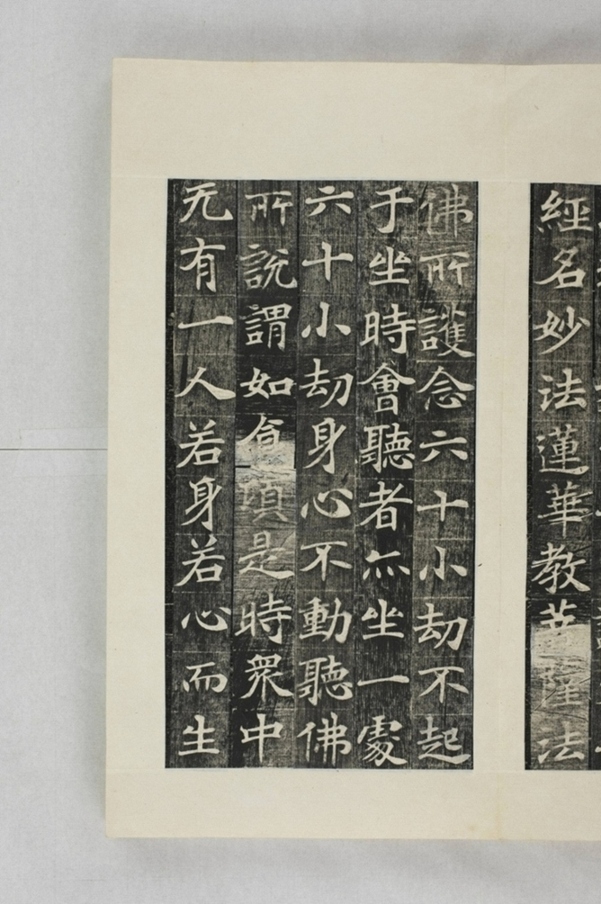 經名妙法蓮華教菩薩法
佛所護念六十小劫不起
于坐時會聽者亦坐一處
六十小劫身心不動聽佛
所說謂如食頃是時衆中
无有一人若身若心而生